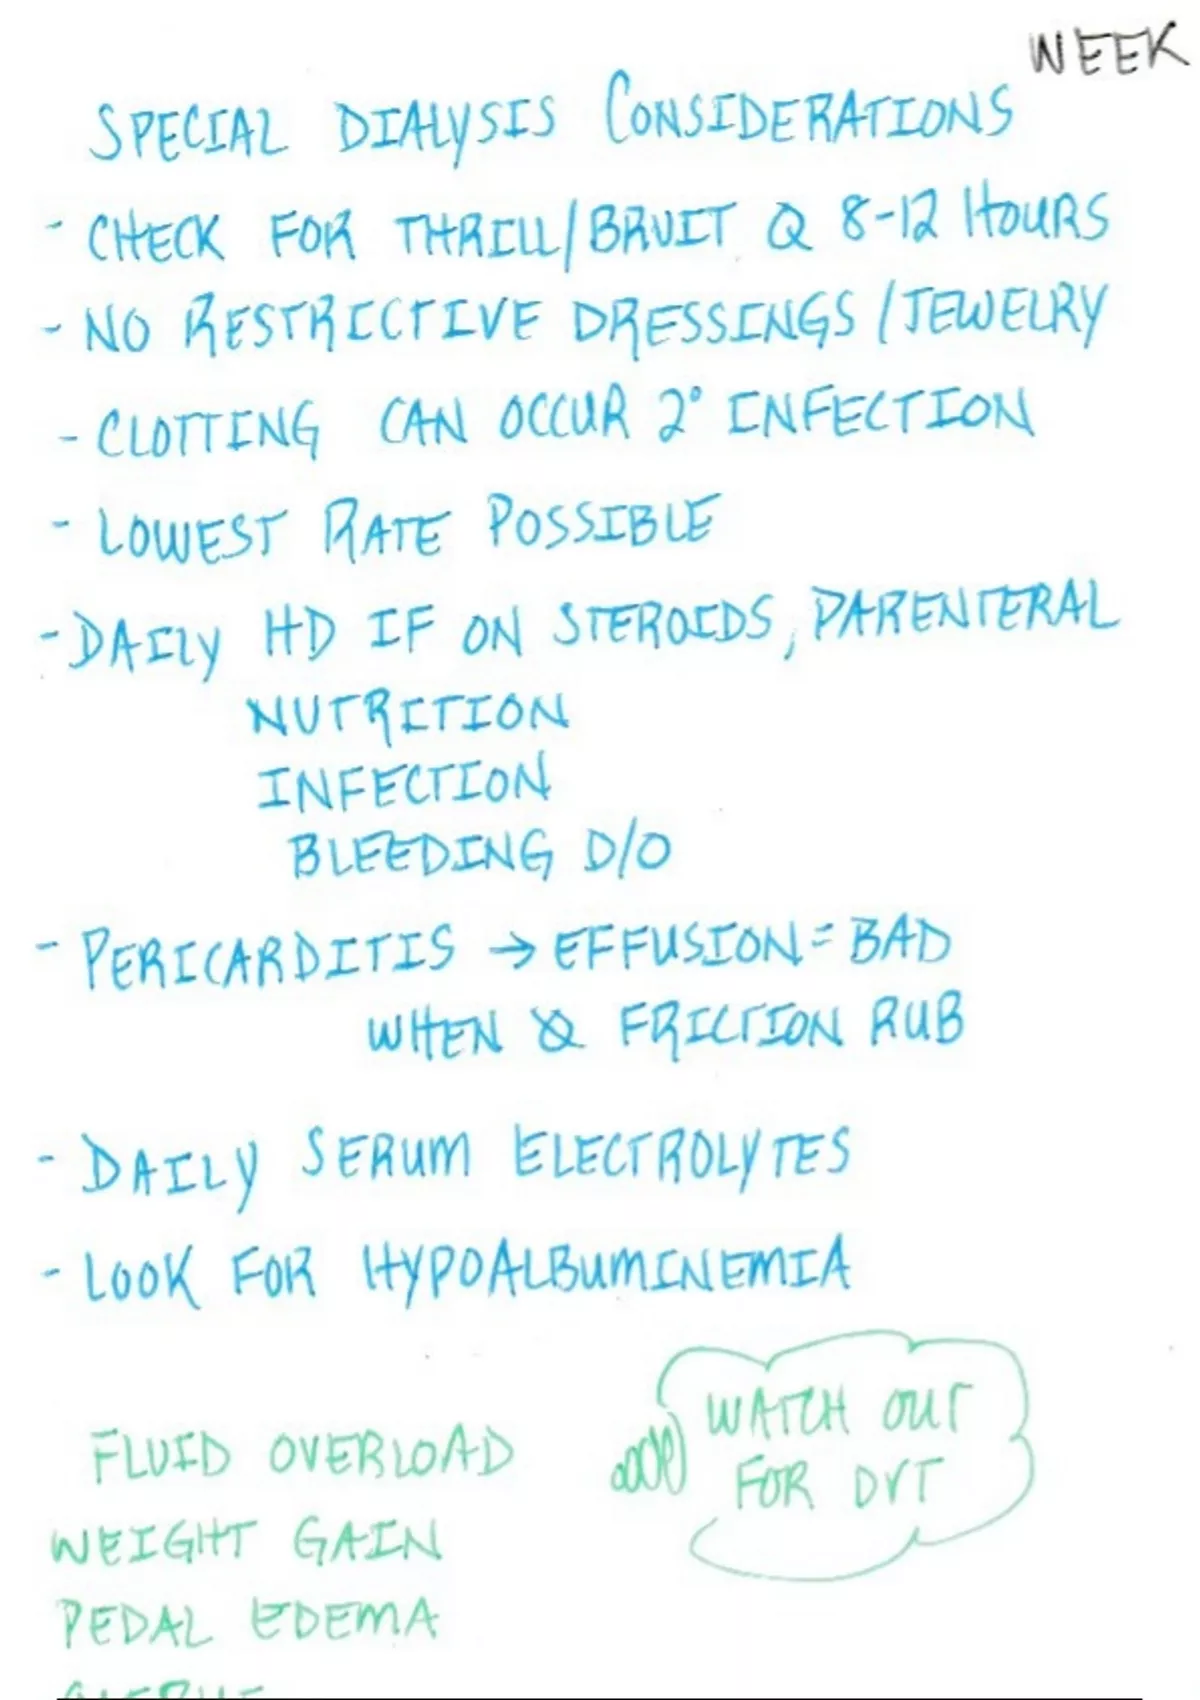 WEEK
SPECIAL DIALYSIS CONSIDERATIONS
- CHECK FOR THRILL/BRUIT Q 8-12 HOURS
- NO RESTRICTIVE DRESSINGS/JEWELRY
- CLOTTING CAN OCCUR 2° INFECTION
- LOWEST RATE POSSIBLE
- DAILY HD IF ON STEROIDS, PARENTERAL
NUTRITION
INFECTION
BLEEDING D/O
- PERICARDITIS → EFFUSION = BAD
WHEN FRICTION RUB
- DAILY SERUM ELECTROLYTES
- LOOK FOR HYPOALBUMINEMIA
WATCH OUT
FOR DVT
FLUID OVERLOAD
WEIGHT GAIN
PEDAL EDEMA